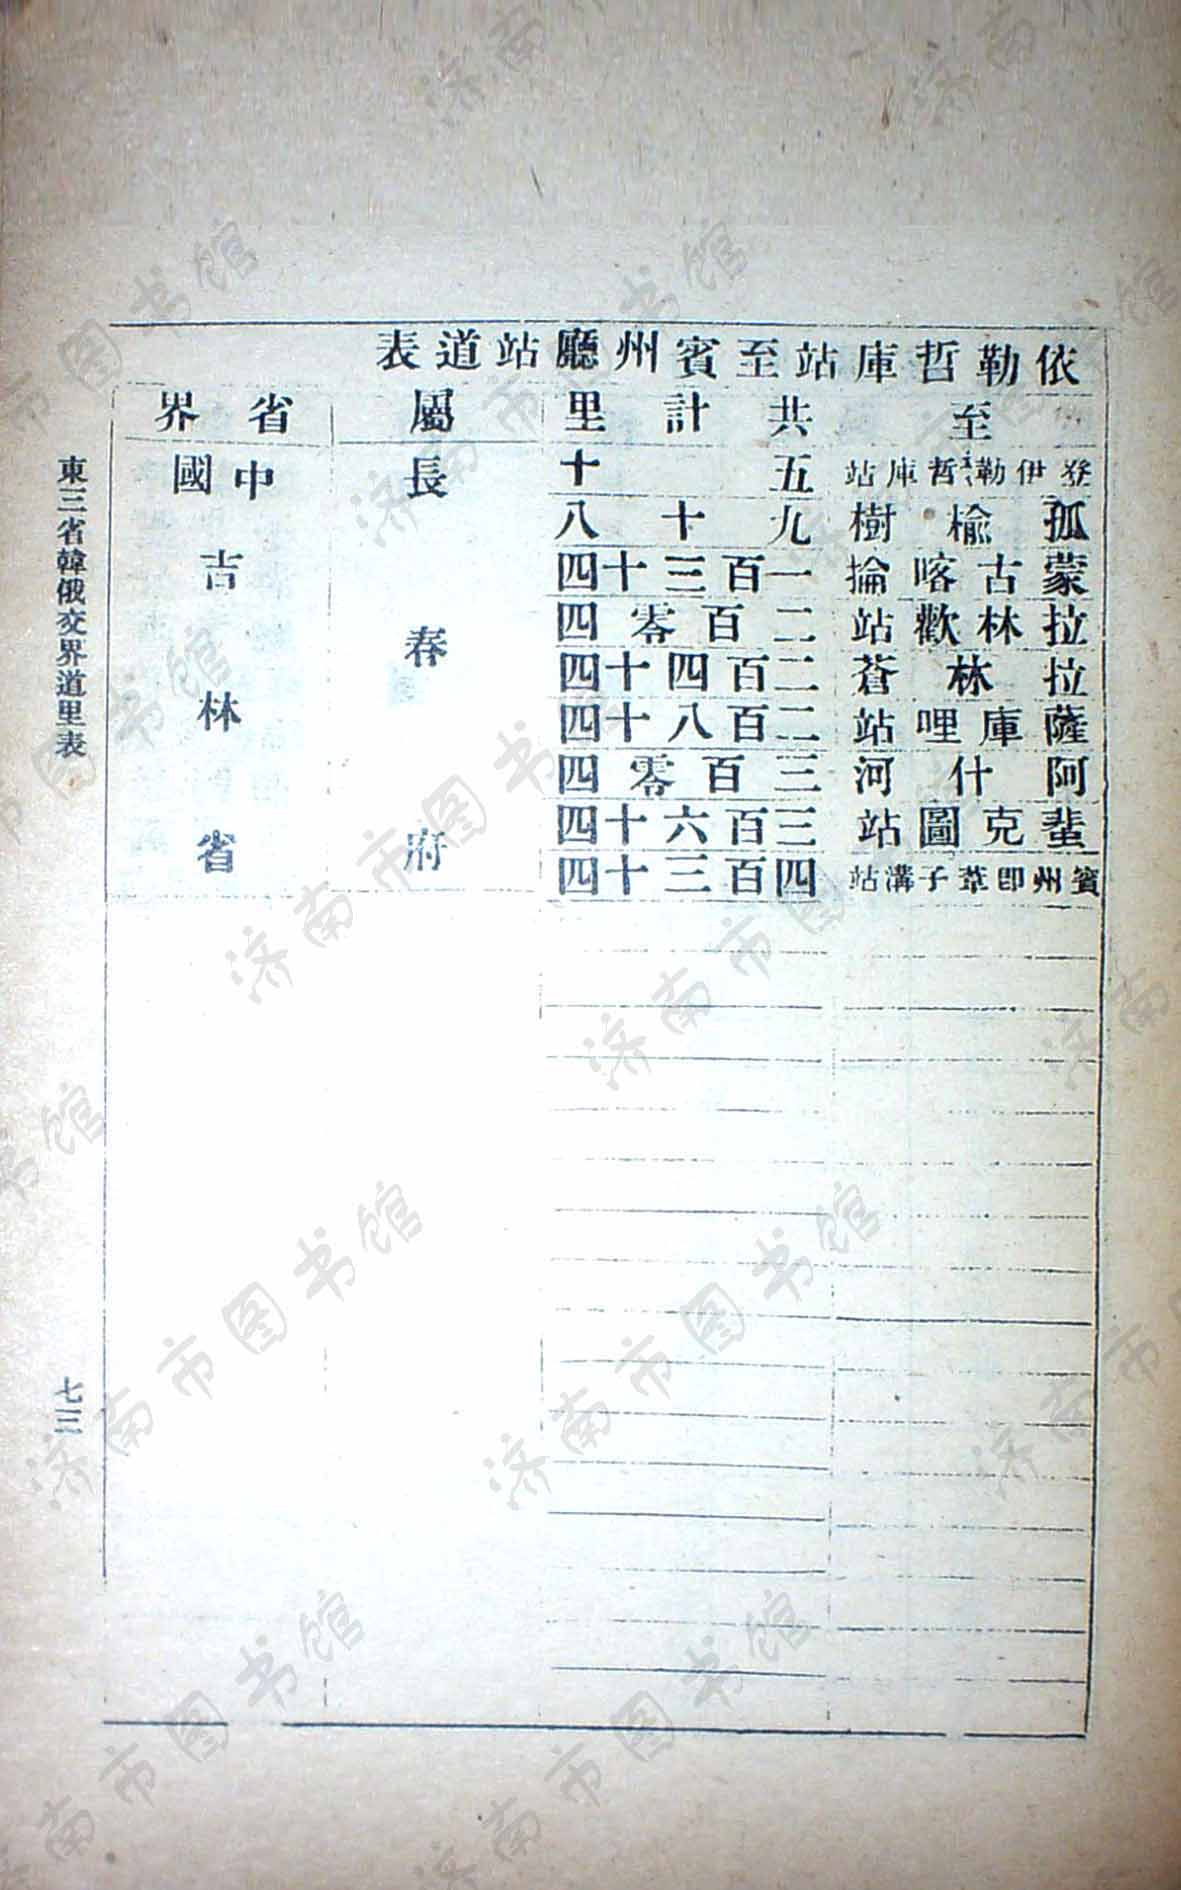 依勒哲庫站至賓州廳站道表
至 共計里 屬 省界
登伊勒哲庫站 五十 長春府 中國吉林省
孤榆樹 九十八
蒙古喀掄 一百三十四
拉林歡站 二百零四
拉林蒼 二百四十四
薩庫哩站 二百八十四
阿什河 三百零四
蜚克圖站 三百六十四
賓州即葦子溝站 四百三十四
東三省韓俄交界道里表
七三
济南市图书馆